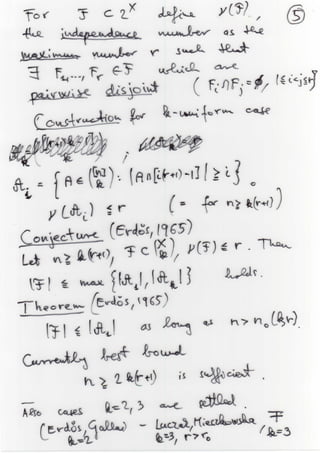 For 𝓕 ⊂ 2^X define ν(𝓕), ⑤
the independence number as the
maximum number r such that
∃ F₁,..., F_r ∈ 𝓕 which are
pairwise disjoint (F_i ∩ F_j = ∅, 1≤i<j≤r)
Construction for k-uniform case
𝒜_i = {A ∈ ([n] choose k) : |A ∩ [i(r+1)-1]| ≥ i}.
ν(𝒜_i) ≤ r (= for n ≥ k(r+1))
Conjecture (Erdős, 1965)
Let n ≥ k(r+1), 𝓕 ⊂ (X choose k), ν(𝓕) ≤ r. Then
|𝓕| ≤ max {|𝒜₁|, |𝒜_k|} holds.
Theorem (Erdős, 1965)
|𝓕| ≤ |𝒜₁| as long as n > n₀(k,r).
Currently best bound
n ≥ 2k(r+1) is sufficient.
Also cases k=2,3 are settled.
(Erdős, Gallai – Łuczak, Mieczkowska, F
k=2 k=3, r>r₀ k=3